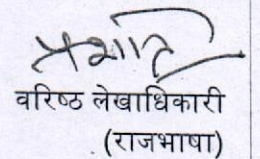 वरिष्ठ लेखाधिकारी
(राजभाषा)